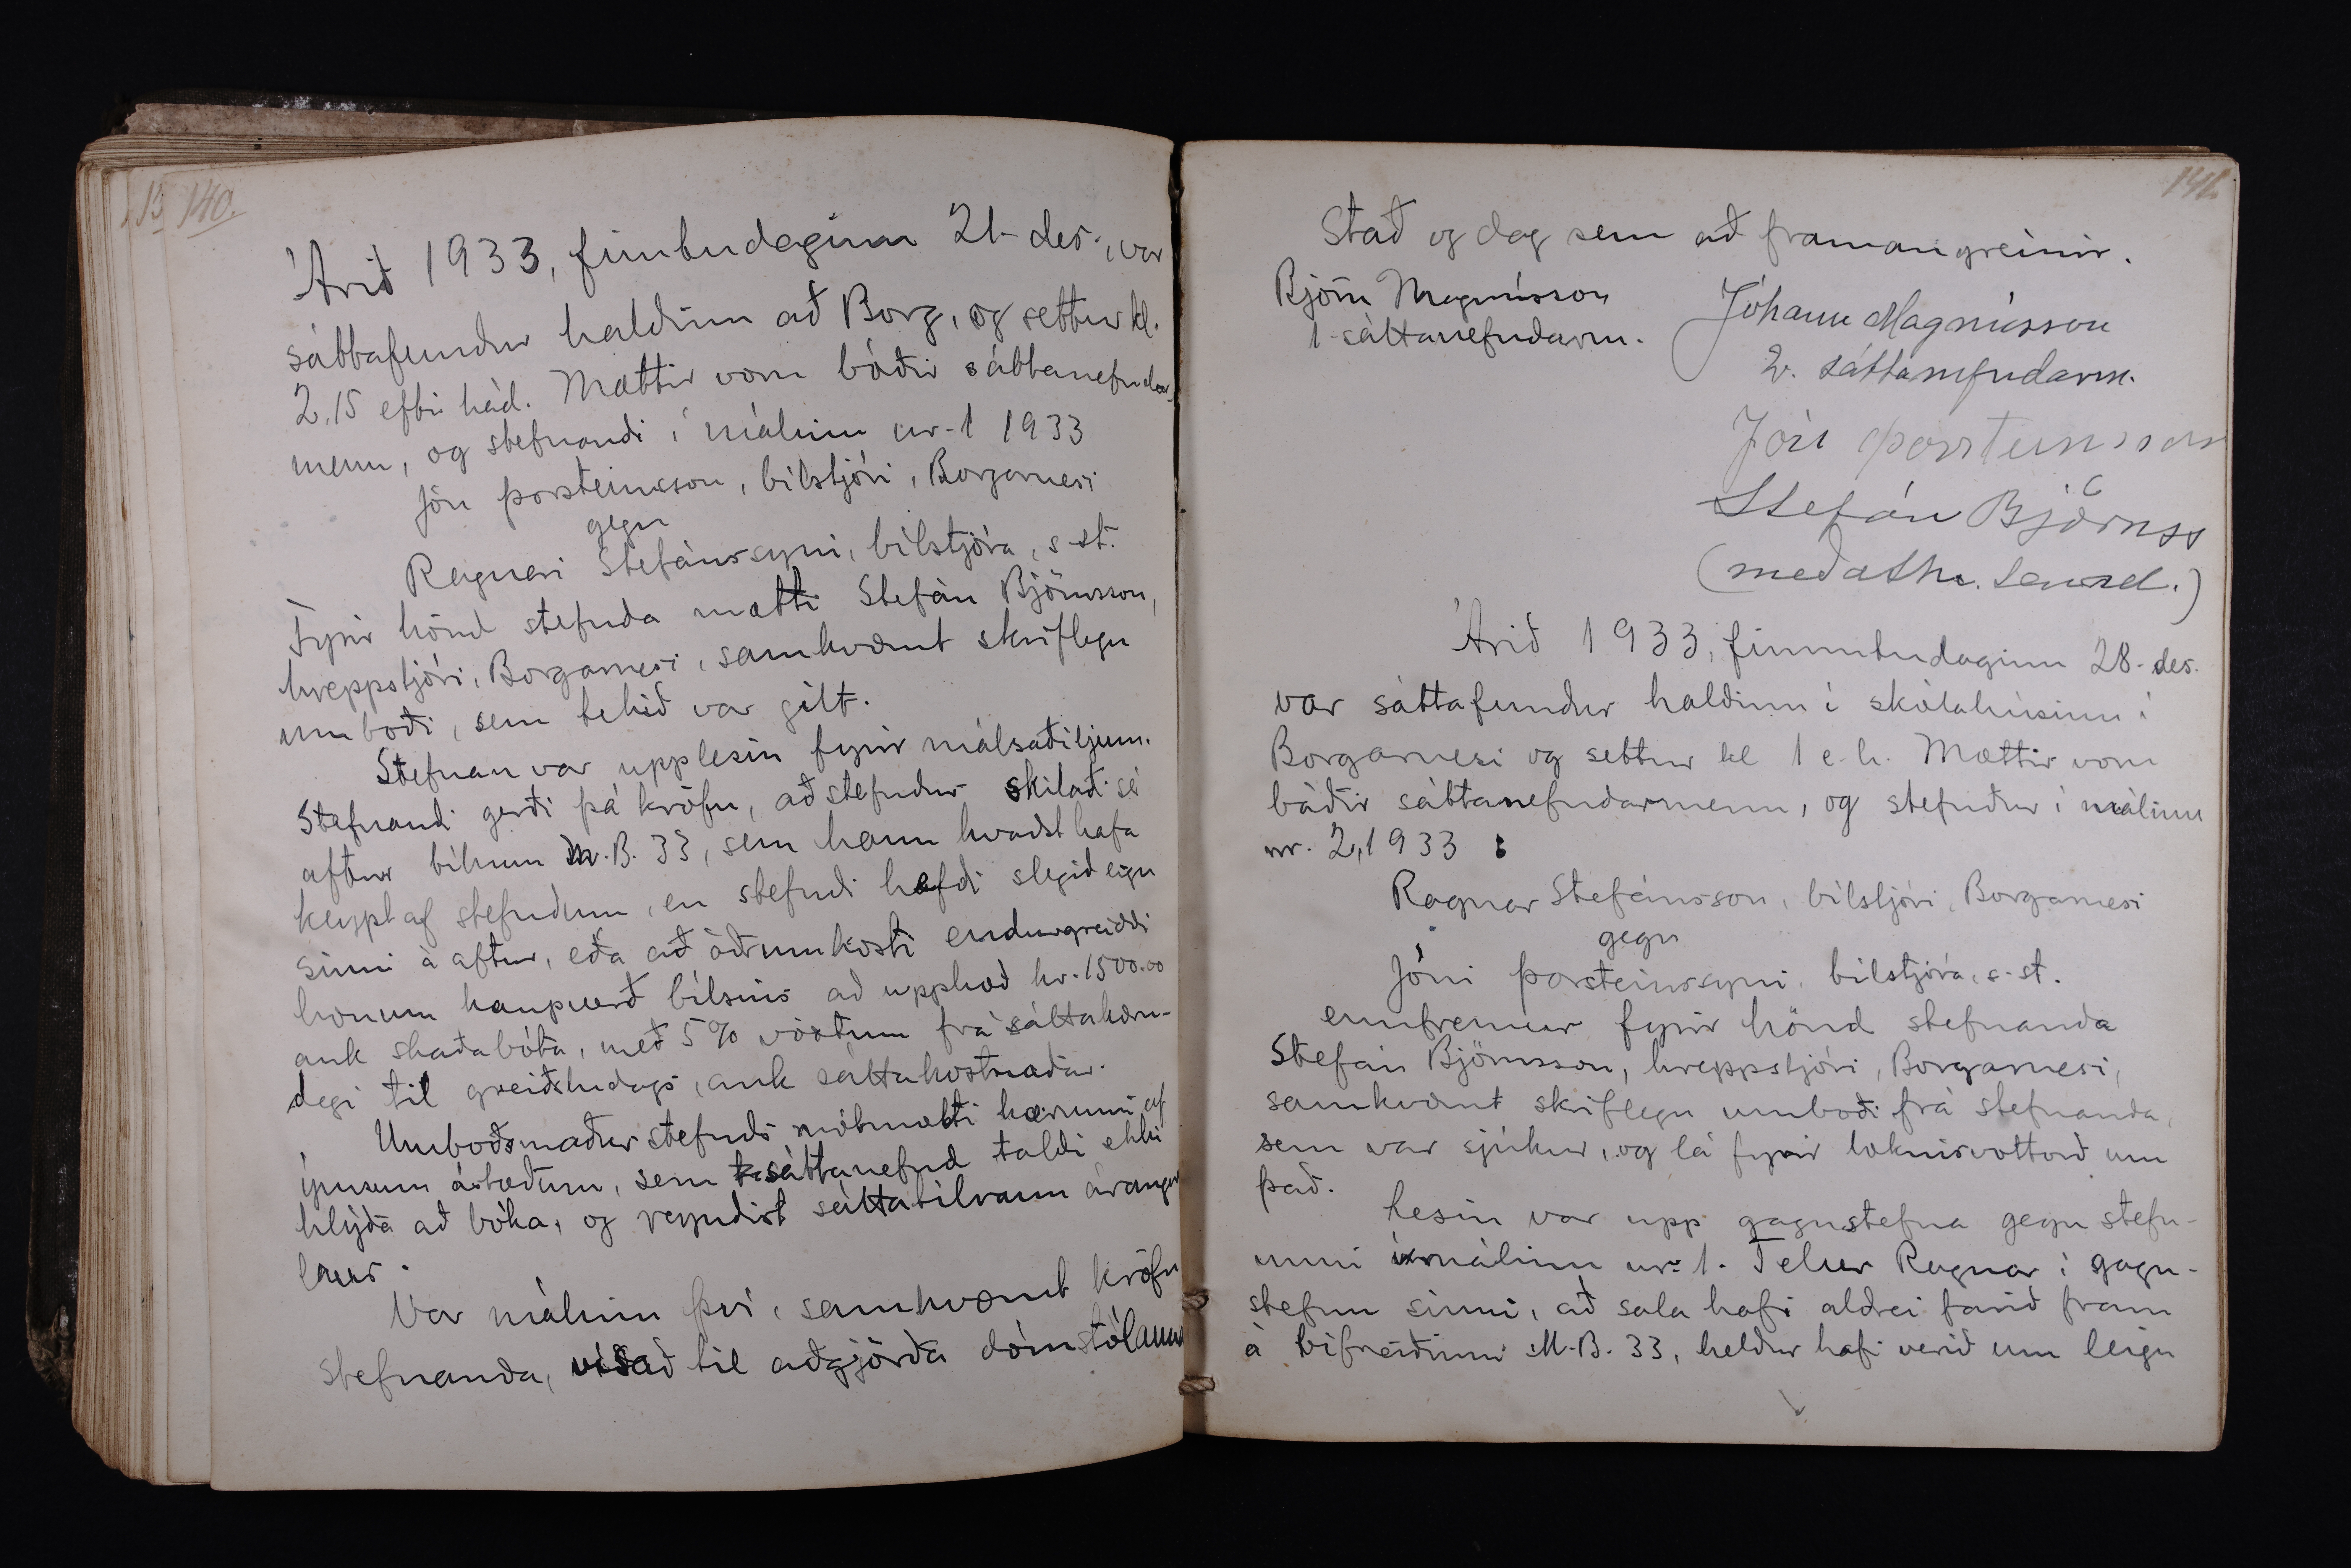 140.
Árið 1933, fimtudaginn 21. des., var
sáttafundur haldinn að Borg, og settur kl.
2,15 eftir hád. Mættir voru báðir sáttanefndar-
menn, og stefnandi í málinu nr. 1 1933
Jón Þorsteinsson, bílstjóri, Borgarnesi
gegn
Ragnari Stefánssyni, bílstjóra, s. st.
Fyrir hönd stefnda mætti Stefán Björnsson,
hreppstjóri, Borgarnesi, samkvæmt skriflegu
umboði, sem tekið var gilt.
Stefnan var upplesin fyrir málsaðiljum.
Stefnandi gerði þá kröfu, að stefndur skilaði sér
aftur bílnum M.B. 33, sem hann kvaðst hafa
keypt af stefndum, en stefndi hefði slegið eign
sinni á aftur, eða að öðrum kosti endurgreiddi
honum kaupverð bílsins að upphæð kr. 1500.00
auk skaðabóta, með 5% vöxtum frá sáttakæru-
degi til greiðsludags, auk sáttakostnaðar.
Umboðsmaður stefnds mótmælti kærunni af
ýmsum ástæðum, sem sáttanefnd taldi ekki
hlýða að bóka, og reyndist sáttatilraun árangurs
laus.
Var málinu því, samkvæmt kröfu
stefnanda, vísað til aðgjörða dómstólanna
141.
Stað og dag sem að framan greinir.
Björn Magnússon
1. sáttanefndarm.
Jóhann Magnússon
2. sáttanefndarm.
Jón Þorsteinsson
Stefán Björnss
(með aths. 
Árið 1933, fimmtudaginn 28. des.
var sáttafundur haldinn í skólahúsinu í
Borgarnesi og settur kl 1 e.h. Mættir voru
báðir sáttanefndarmenn, og stefndur í málinu
nr. 2, 1933 :
Ragnar Stefánsson, bílstjóri, Borgarnesi
gegn
Jóni Þorsteinssyni, bílstjóra, s. st.
ennfremur fyrir hönd stefnanda
Stefán Björnsson, hreppstjóri, Borgarnesi,
samkvæmt skriflegu umboði frá stefnanda,
sem var sjúkur, og lá fyrir læknisvottorð um
það.
Lesin var upp gagnstefna gegn stefn-
unni í málinu nr. 1. Telur Ragnar í gagn-
stefnu sinni, að sala hafi aldrei farið fram
á bifreiðinni M.B. 33, heldur hafi verið um leigu